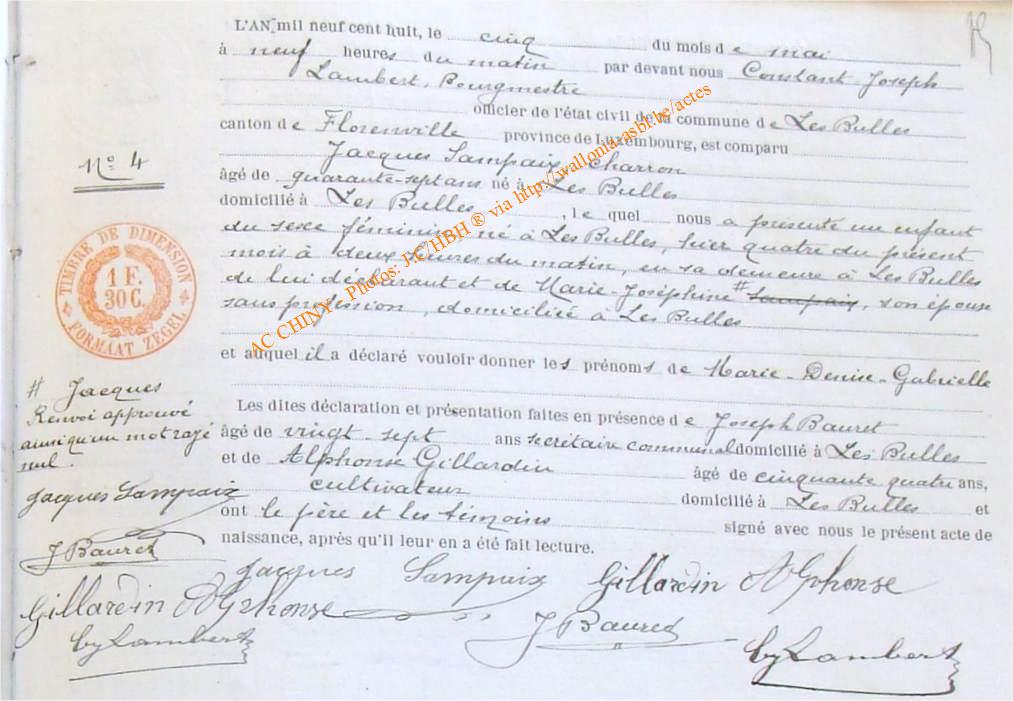 L'AN mil neuf cent huit, le cinq du mois de mai
à neuf heures du matin par devant nous Constant-Joseph
Lambert, Bourgmestre
officier de l'état civil de la commune de Les Bulles
canton de Florenville province de Luxembourg, est comparu
Jacques Sampaix, charron
âgé de quarante-sept ans né à Les Bulles
domicilié à Les Bulles, lequel nous a présenté un enfant
du sexe féminin né à Les Bulles, hier quatre du présent
mois à deux heures du matin, en sa demeure à Les Bulles
de lui déclarant et de Marie-Joséphine # Sampaix, son épouse
sans profession, domiciliée à Les Bulles
et auquel il a déclaré vouloir donner les prénoms de Marie-Denise-Gabrielle
Les dites déclaration et présentation faites en présence de Joseph Bauret
âgé de vingt-sept ans secrétaire communal domicilié à Les Bulles
et de Alphonse Gillardin âgé de cinquante quatre ans,
cultivateur domicilié à Les Bulles et
ont le père et les témoins signé avec nous le présent acte de
naissance, après qu'il leur en a été fait lecture.
Jacques Sampaix Gillardin Alphonse
J Bauret
Lambert
N° 4
TIMBRE DE DIMENSION
1 F.
30 C.
FORMAAT ZEGEL
# Jacques
Renvoi approuvé
ainsi qu'un mot rayé
nul.
Jacques Sampaix
J Bauret
Gillardin Alphonse
Lambert
AC CHINY - Photos: J.C. HBH ® via http://wallonia-asbl.be/actes